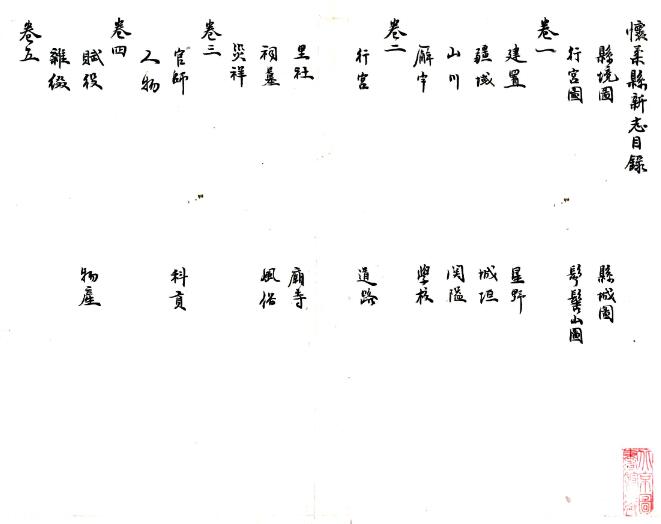 懷柔縣新志目錄
縣境圖 縣城圖
行宮圖 髻髻山圖
卷一
建置 星野
疆域 城垣
山川 関隘
廨宇 學校
卷二
行宮 道路
里社 廟寺
祠墓 風俗
災祥
卷三
官師 科貢
人物
卷四
賦役 物產
雜綴
卷五